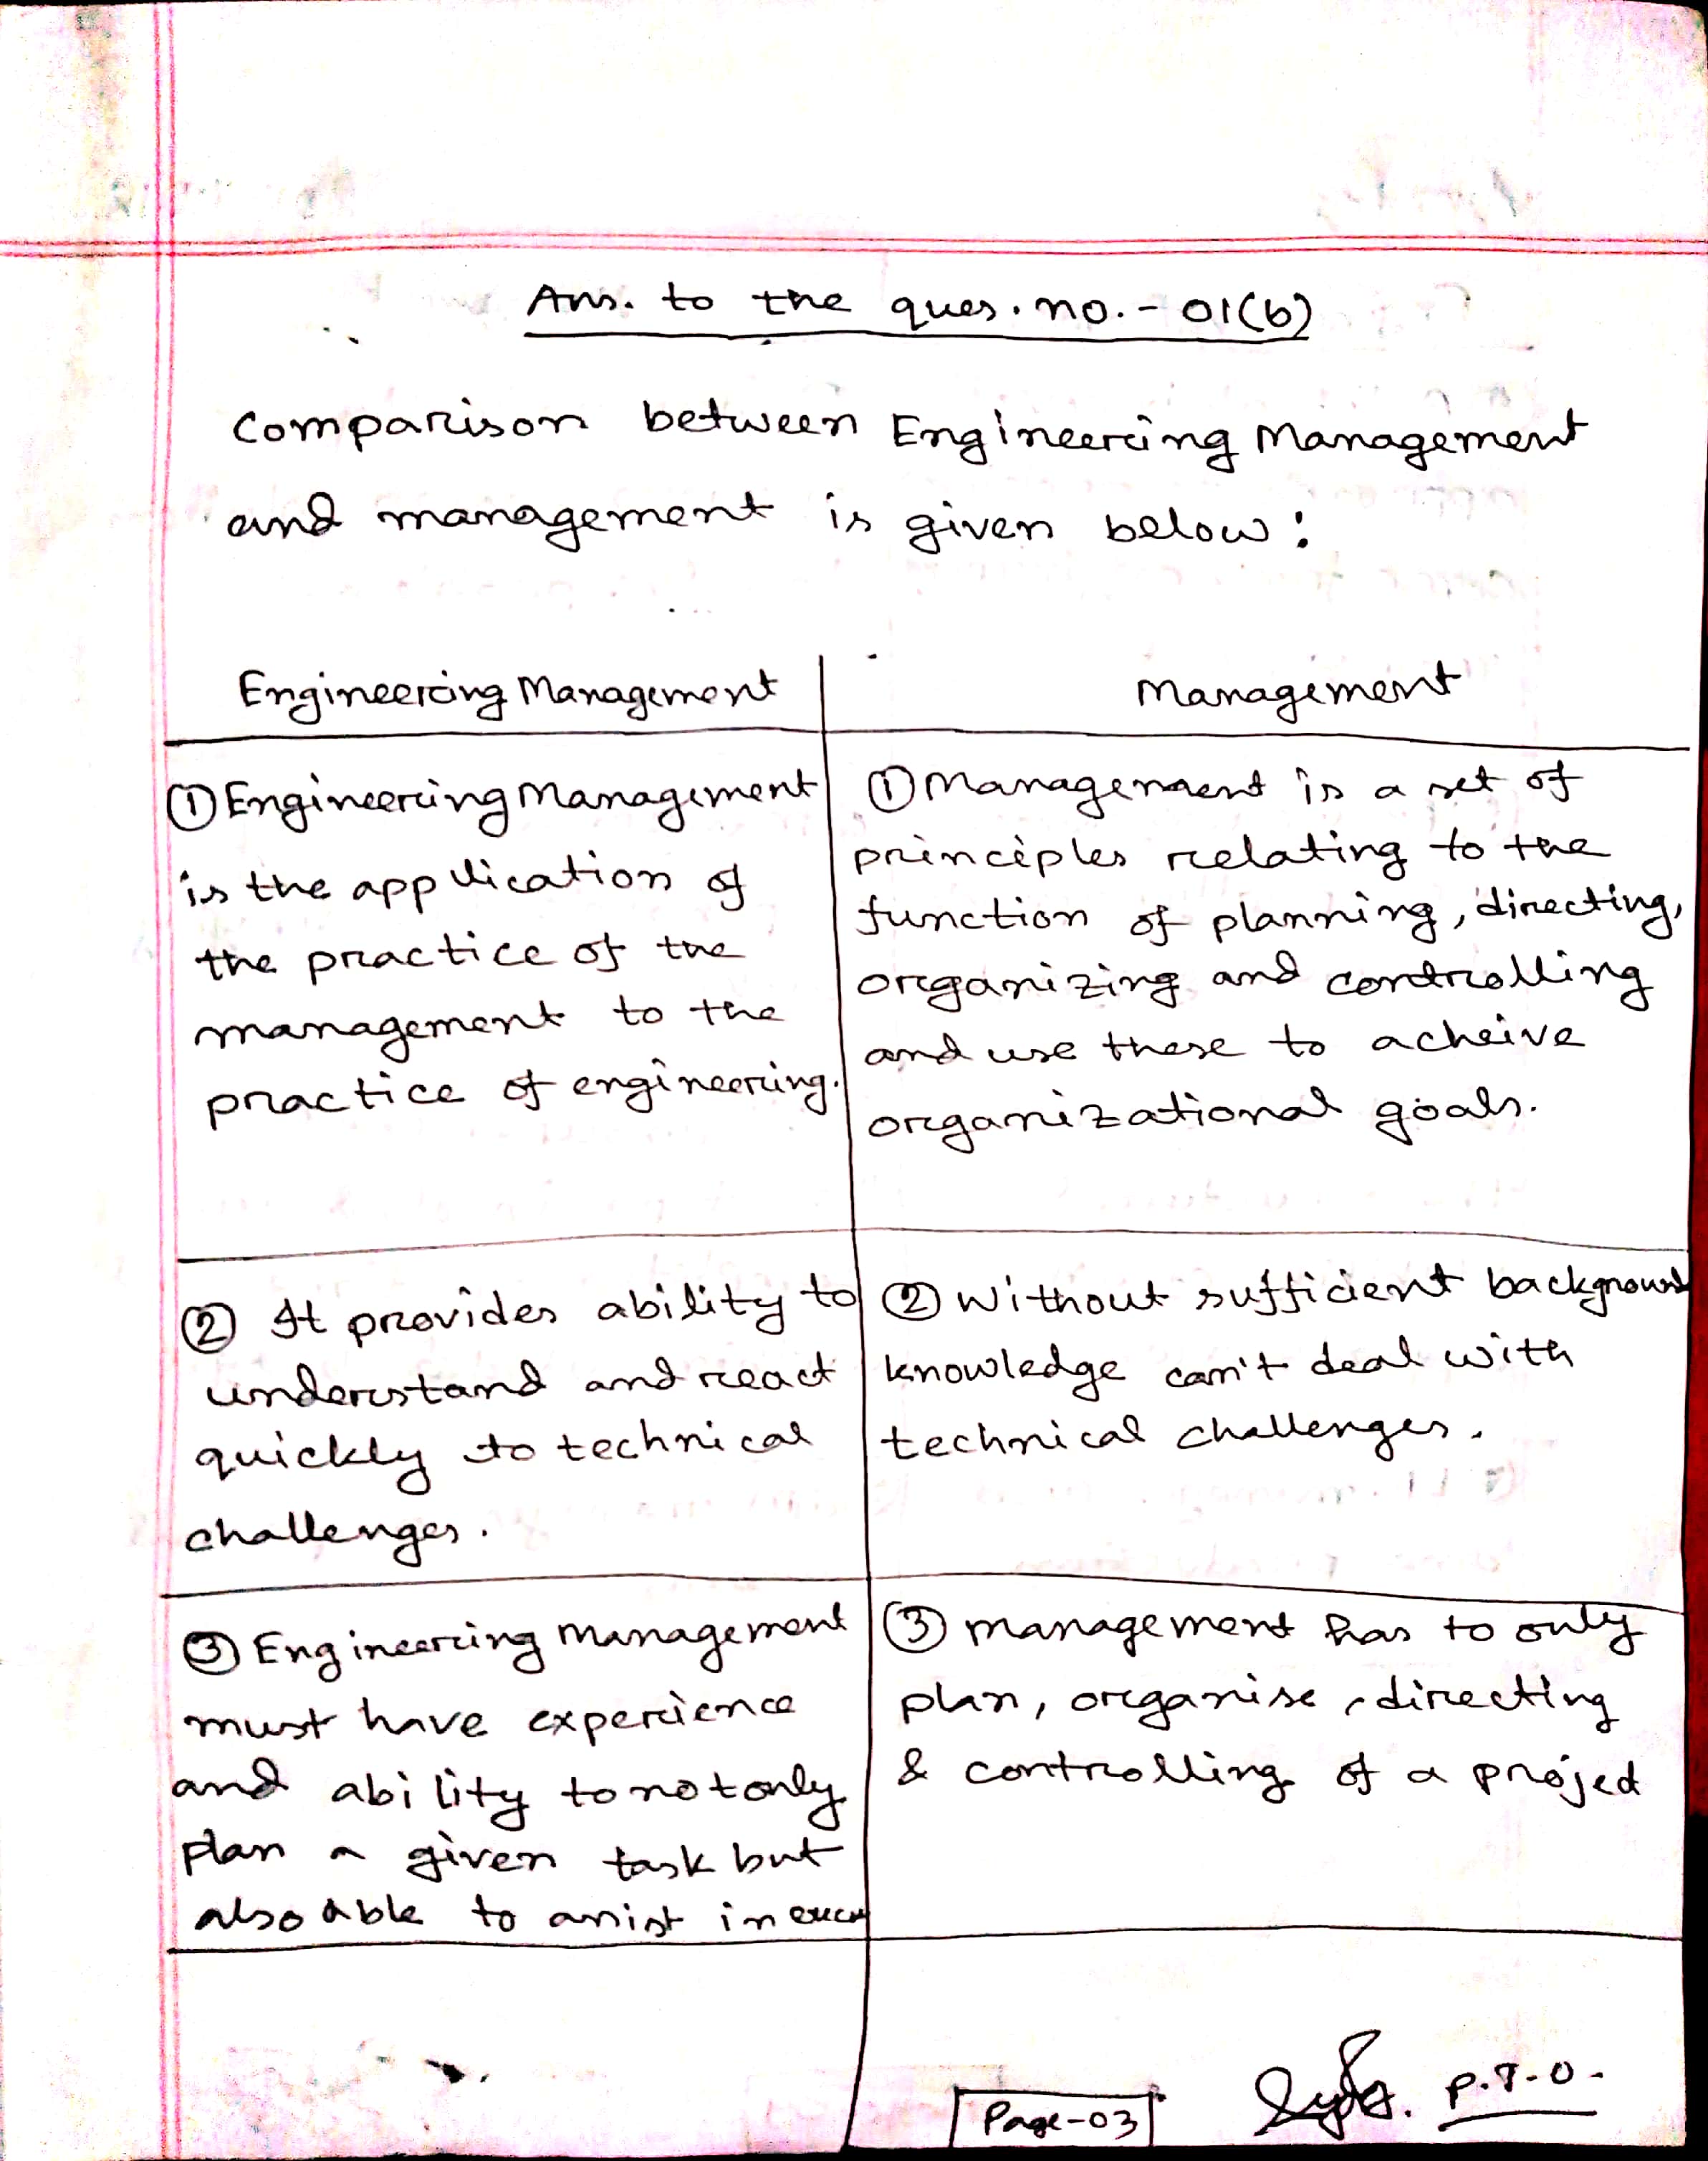 Ans. to the ques. no. - 01(b)
Comparison between Engineering Management
and management is given below:
Engineering Management
Management
① Engineering Management
is the application of
the practice of the
management to the
practice of engineering.
① Management is a set of
principles relating to the
function of planning, directing,
organizing and controlling
and use these to acheive
organizational goals.
② It provides ability to
understand and react
quickly to technical
challenges.
② Without sufficient background
knowledge can't deal with
technical challenges.
③ Engineering Management
must have experience
and ability to not only
plan a given task but
also able to assist in
③ management has to only
plan, organise, directing
& controlling of a project
Page-03
P.T.O.